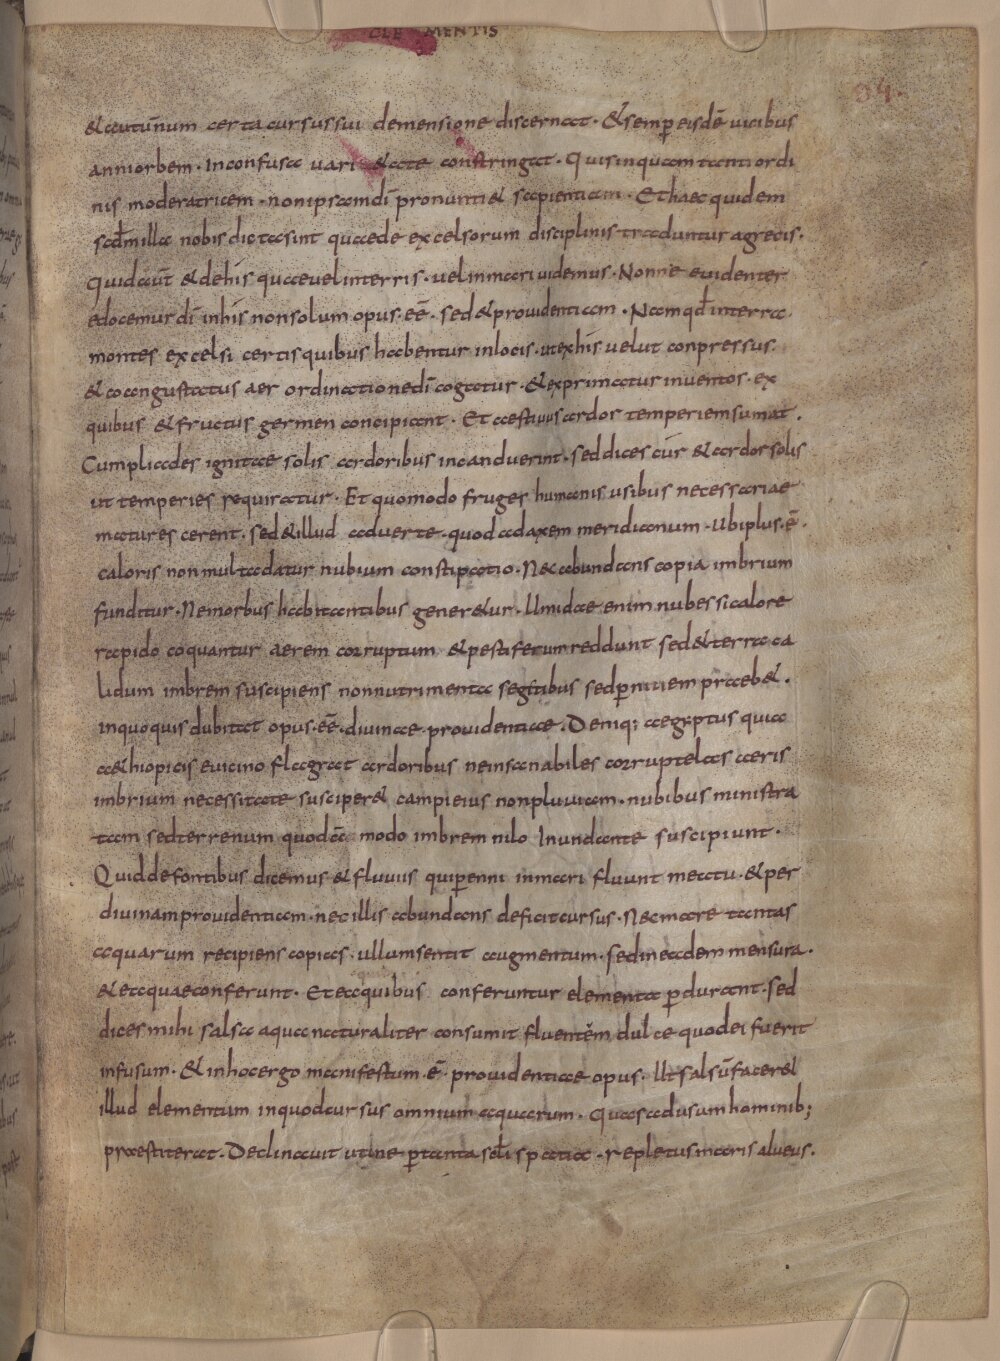 CLEMENTIS
94.
& autūnum certa cursus sui demensione discernat · & semp eisdē uicibus
anni orbem · inconfusa uari&ate constringat · Quis inquam tanti ordi
nis moderatricem · non ipsam dī pronunti& sapientiam · Et haec quidem
scdm illa nobis dicta sint quae de excelsorum disciplinis traduntur a grecis ·
Quid aūt & de his quae uel in terris · uel in mari uidemus · Nonne euidenter
edocemur dī in his non solum opus · eē · sed & prouidentiam · Nam qd in terra
montes excelsi certis quibus habentur in locis · ut ex his uelut conpressus
& coangustatus aer ordinatione dī cogatur · & exprimatur in uentos · ex
quibus & fructus germen concipiant · Et aestiuus ardor temperiem sumat ·
Cum pliades ignitae solis ardoribus incanduerint · sed dices cur & ardor solis
ut temperies requiratur · Et quomodo fruges humanis usibus necessariae
matures cerent · sed & illud aduerte · quod ad axem meridianum · ubi plus · ē ·
caloris non multa datur nubium constipatio · Nec abundans copia imbrium
funditur · Ne morbus habitantibus gener&ur · Umidae enim nubes si calore
rapido coquantur aerem corruptum & pestiferum reddunt sed & terra ca
lidum imbrem suscipiens non nutrimenta seg&ibus sed pnitiem praeb& ·
in quo quis dubitat opus · eē · diuinae prouidentiae · Deniq; aegyptus quia
a&hiopicis e uicino flagrat ardoribus ne insanabiles corruptelas aeris
imbrium necessitate susciper& campi eius non pluuiam · nubibus ministra
tam sed terrenum quodā modo imbrem nilo Inundante suscipiunt ·
Quid de fontibus dicemus & fluuiis qui penni in mari fluunt meatu · & per
diuinam prouidentiam · nec illis abundans deficit cursus · Nec mare tantas
aquarum recipiens copias · ullum sentit augmentum · sed in eadem mensura ·
& ea quae conferunt · Et ea quibus conferuntur elementa pdurant · sed
dices mihi salsa aqua naturaliter consumit fluentem dulce quod ei fuerit
infusum · & in hoc ergo manifestum · ē · prouidentiae opus · Ut salsū facer&
illud elementum in quod cursus omnium aquarum · quas ad usum hominib;
praestiterat · Declinauit ut ne ptanta scli spatia · repletus maris alueus ·